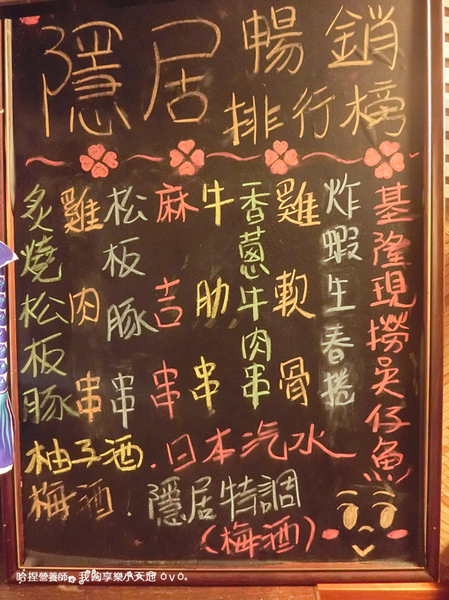 隱居暢銷
排行榜
基隆現撈吳仔魚
炸蝦生春捲
雞軟骨
香蔥牛肉串
牛肋串
麻吉串
松板豚串
雞肉串
炙燒松板豚
柚子酒.日本汽水
梅酒.隱居特調
(梅酒)
哈捏營養師。我的享樂小天地 OvO。